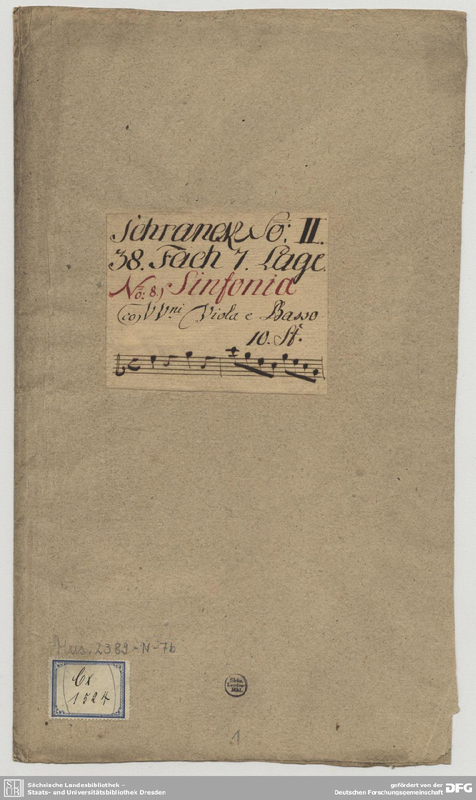 Schranck No: II.
38. Fach 7. Lage.
No: 8) Sinfonia
co) VVni Viola e Basso
10. St.
Mus. 2389-N-7b
Cx
1524
1
Sächsische Landesbibliothek –
Staats- und Universitätsbibliothek Dresden
gefördert von der
Deutschen Forschungsgemeinschaft
DFG